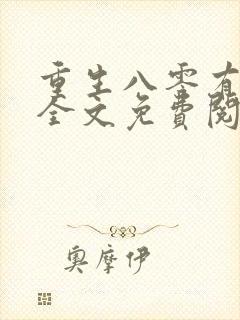 重生八零有
全文免費閱
奧摩伊